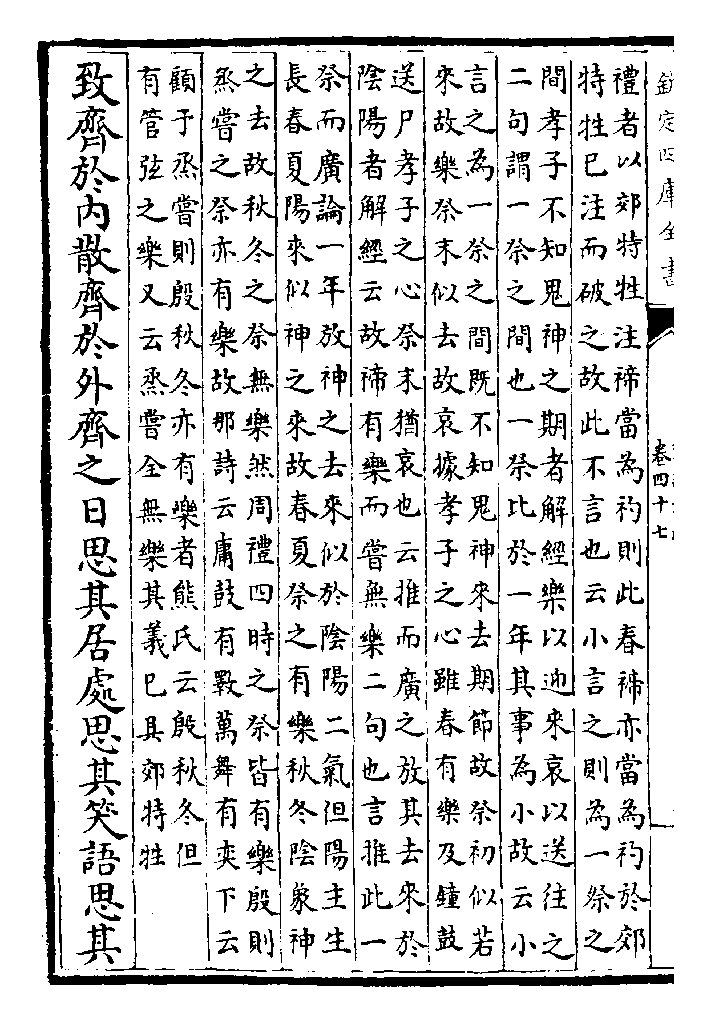 欽定四庫全書
卷四十七
禮者以郊特牲注禘當為礿則此春禘亦當為礿於郊
特牲已注而破之故此不言也云小言之則為一祭之
間孝子不知鬼神之期者解經樂以迎來哀以送往之
二句謂一祭之間也一祭比於一年其事為小故云小
言之為一祭之間既不知鬼神來去期節故祭初似若
來故樂祭末似去故哀據孝子之心雖春有樂及鐘鼓
送尸孝子之心祭末猶哀也云推而廣之放其去來於
陰陽者解經云故禘有樂而嘗無樂二句也言推此一
祭而廣論一年放神之去來似於陰陽二氣但陽主生
長春夏陽來似神之來故春夏祭之有樂秋冬陰象神
之去故秋冬之祭無樂然周禮四時之祭皆有樂殷則
烝嘗之祭亦有樂故那詩云庸鼓有斁萬舞有奕下云
顧于烝嘗則殷秋冬亦有樂者熊氏云殷秋冬但
有管弦之樂又云烝嘗全無樂其義已具郊特牲
致齊於內散齊於外齊之日思其居處思其笑語思其